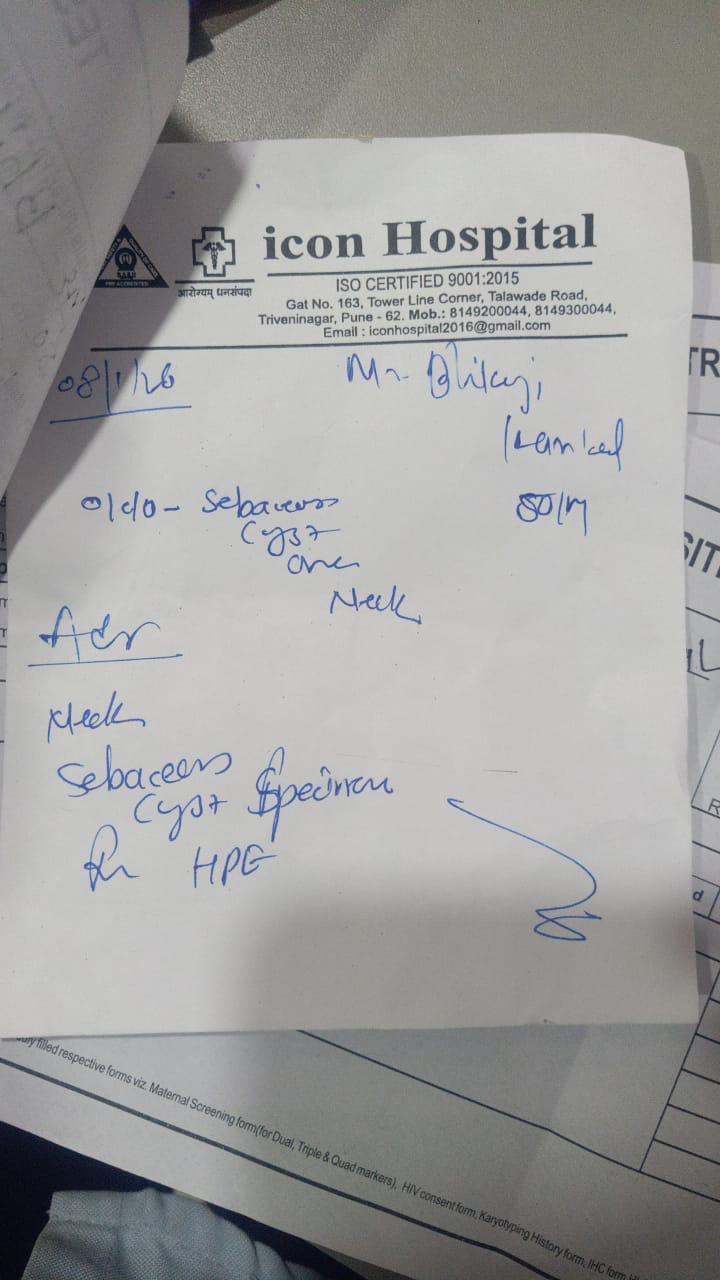 icon Hospital
आरोग्यम् धनसंपदा
ISO CERTIFIED 9001:2015
Gat No. 163, Tower Line Corner, Talawade Road,
Triveninagar, Pune - 62. Mob.: 8149200044, 8149300044,
Email : iconhospital2016@gmail.com
08/1/26
Mr. Bhikaji
Sebaceous
Cyst
over
Neck
Adv
Neck
Sebaceous
Cyst Specimen
for HPE
duly filled respective forms viz. Maternal Screening form(for Dual, Triple & Quad markers), HIV consent form, Karyotyping History form, IHC form